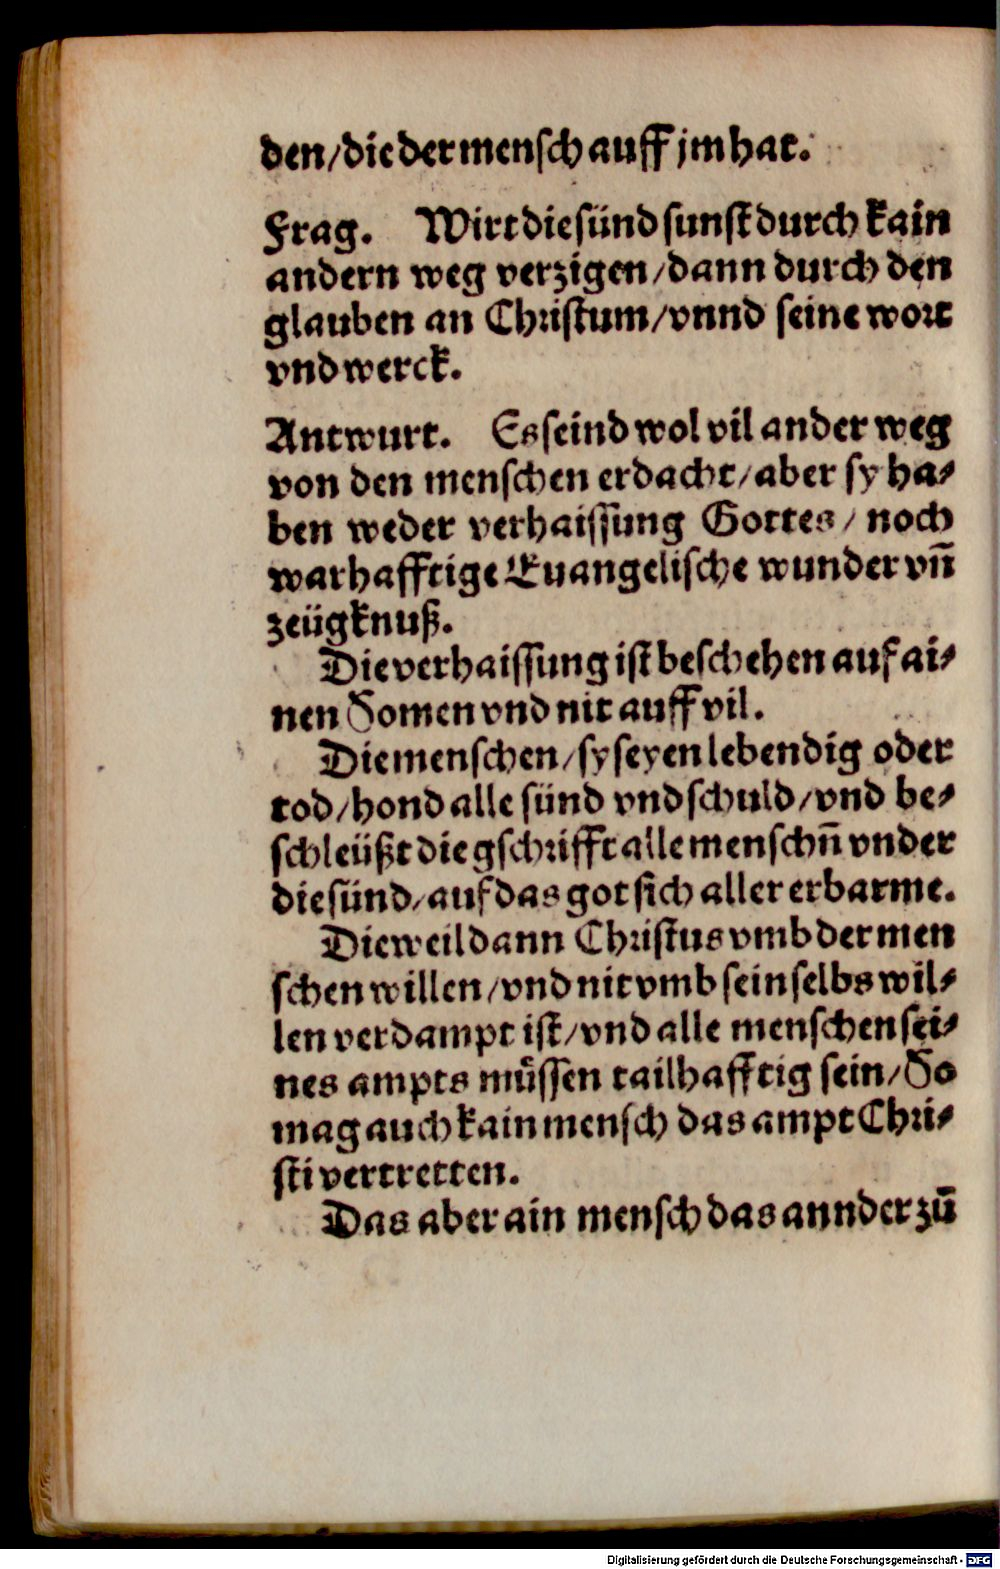 den/die der mensch auff jm hat.
Frag. Wirt die sünd sunst durch kain
andern weg verzigen/dann durch den
glauben an Christum/vnnd seine wort
vnd werck.
Antwurt. Es seind wol vil ander weg
von den menschen erdacht/aber sy ha⸗
ben weder verhaissung Gottes/noch
warhafftige Euangelische wunder vn̄
zeügknuß.
Die verhaissung ist beschehen auf ai⸗
nen Somen vnd nit auff vil.
Die menschen/sy seyen lebendig oder
tod/hond alle sünd vnd schuld/vnd be⸗
schleüßt die gschrifft alle menschn̄ vnder
die sünd/auf das got sich aller erbarme.
Die weil dann Christus vmb der men
schen willen/vnd nit vmb sein selbs wil⸗
len verdampt ist/vnd alle menschen sei⸗
nes ampts müssen tailhafftig sein/So
mag auch kain mensch das ampt Chri⸗
sti vertretten.
Das aber ain mensch das annder zū
Digitalisierung gefördert durch die Deutsche Forschungsgemeinschaft - DFG